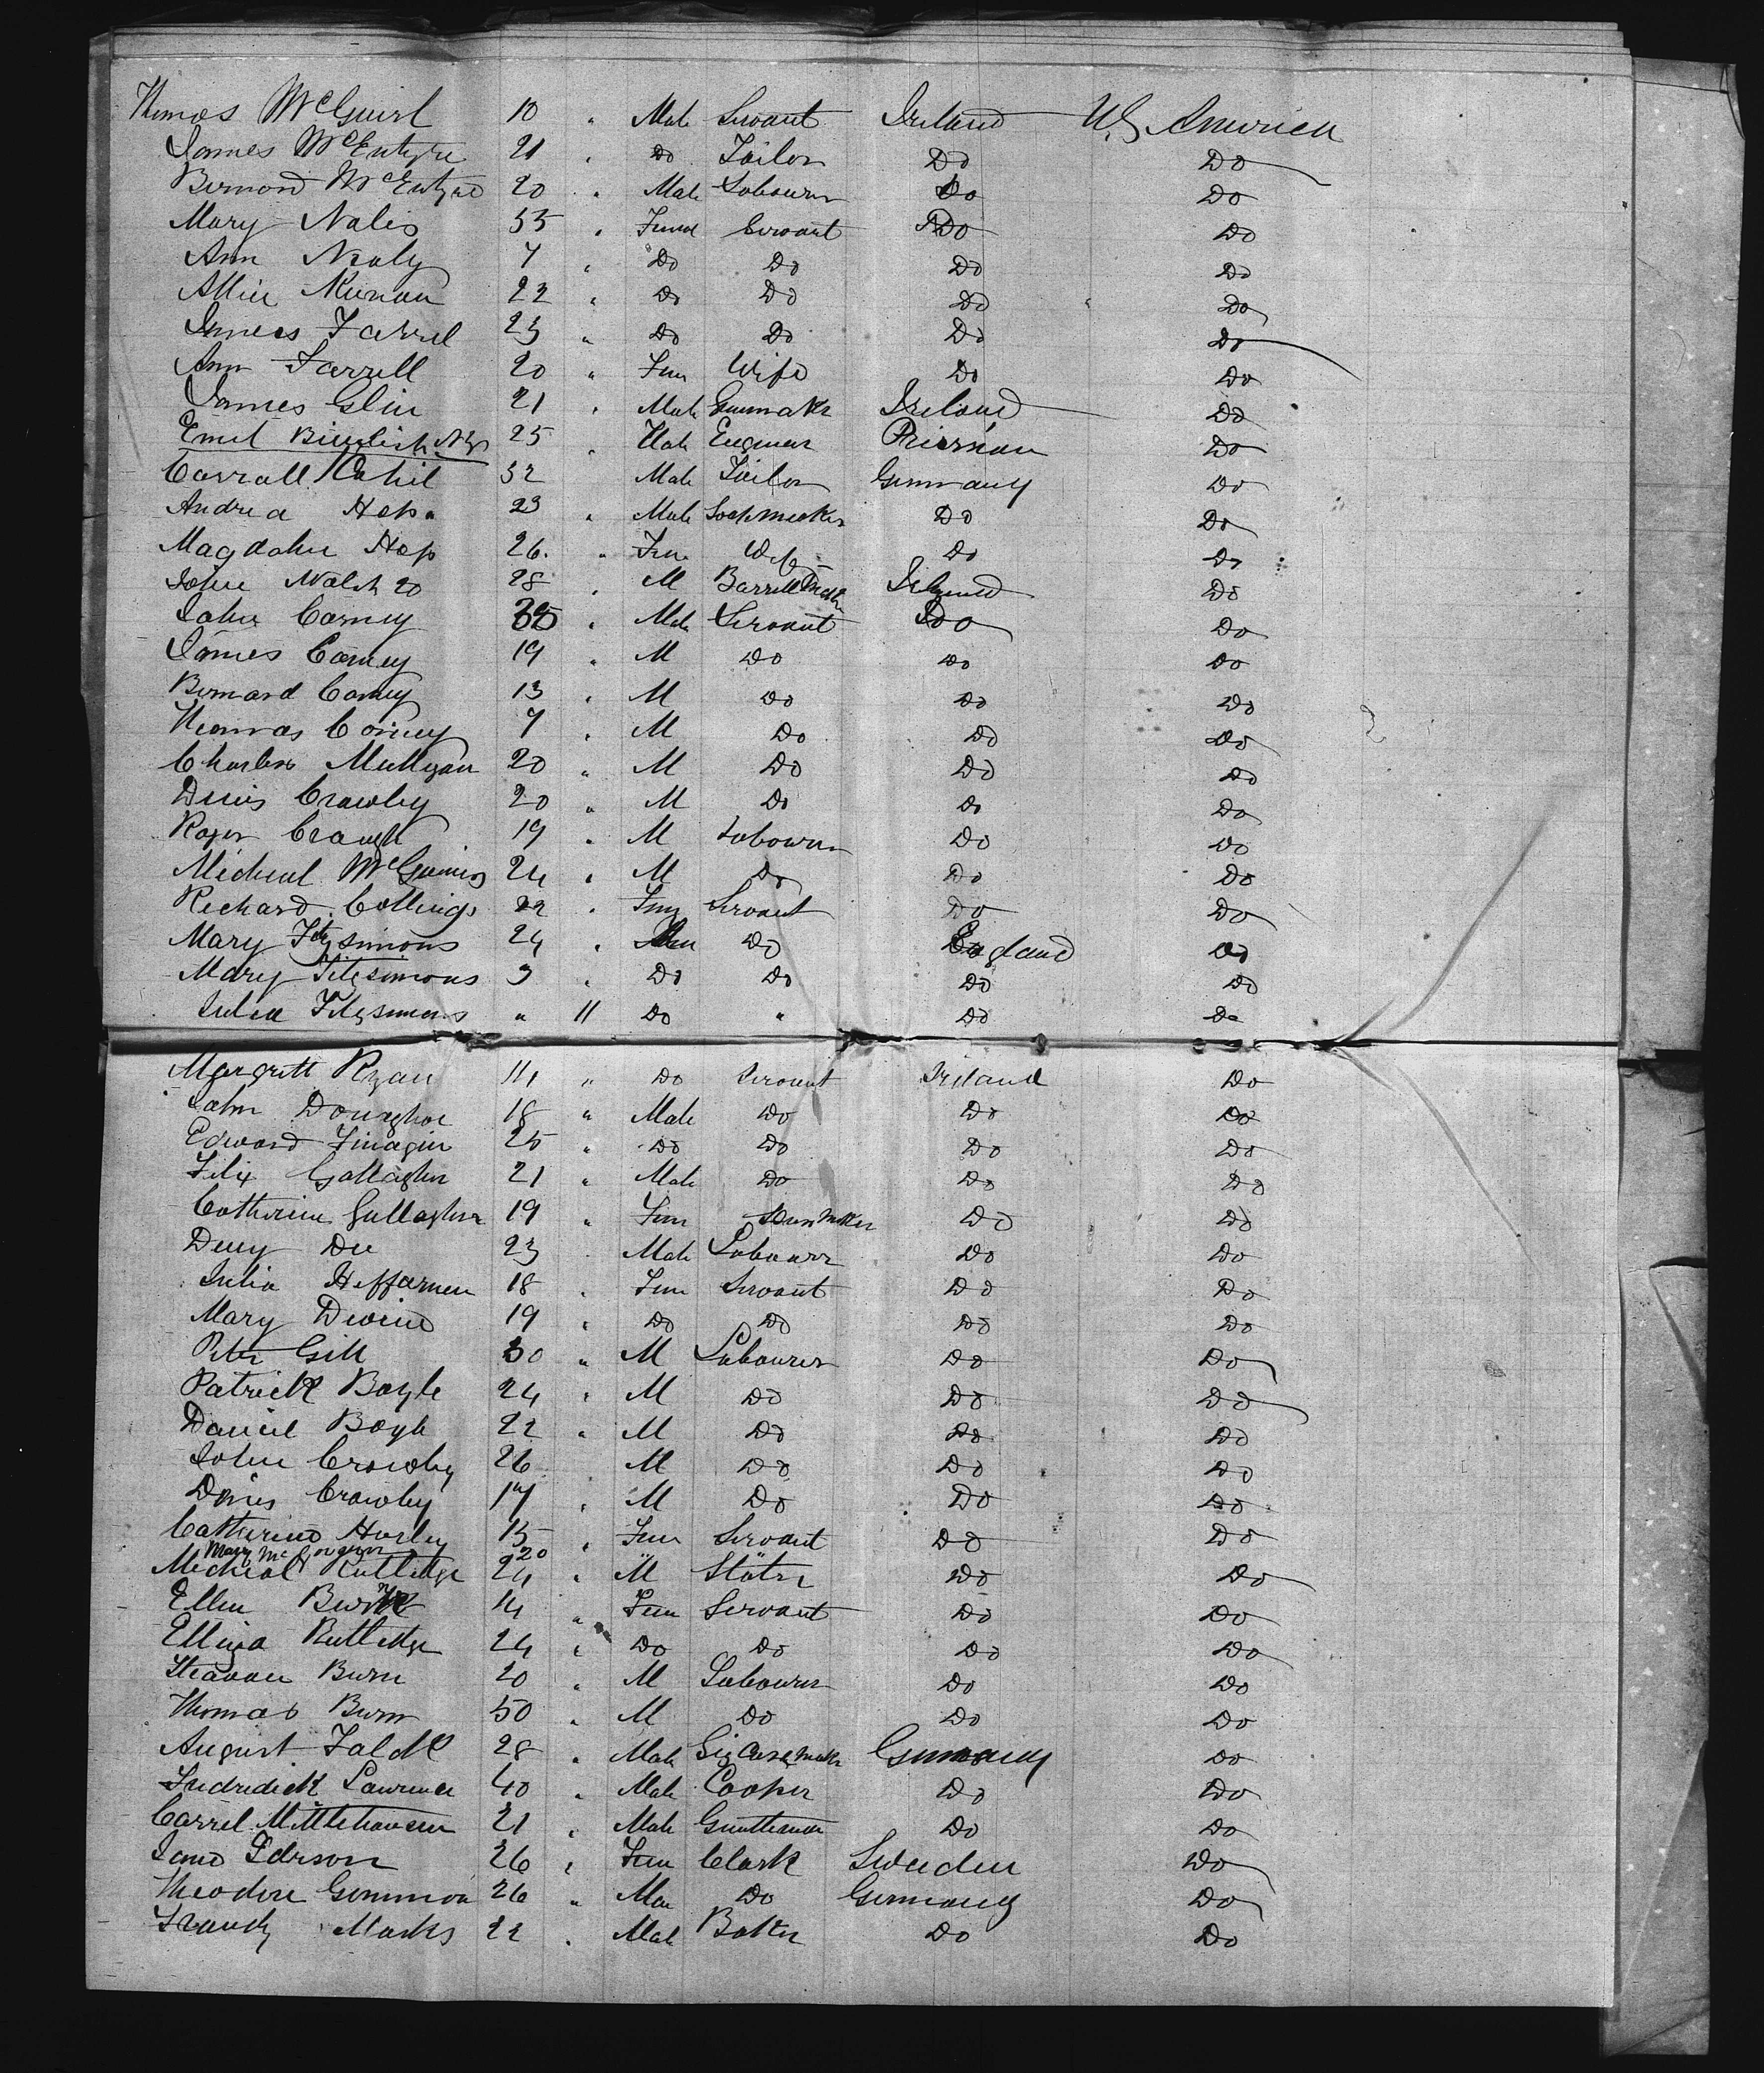 Thomas McGuirl 10 " Male Servant Ireland U.S. America
James McEntyre 21 " Do Tailor Do Do
Bernard McEntyre 20 " Male Labourer Do Do
Mary Nalis 55 " Femal Servant Do Do
Ann Nealy 7 " Do Do Do Do
Allice Kiernan 22 " Do Do Do Do
James Farrel 23 " Do Do Do Do
Ann Farrell 20 " Fem Wife Do Do
James Glin 21 " Male Gunmaker Ireland Do
Emil 25 " Male Do
Carrall Cahil 32 Male Tailor Germany Do
Andrea Hep 23 " Male Soapmaker Do Do
Magdalin Hep 26 " Fem Wife Do Do
John Walsh 20 28 " M Barrellmaker Ireland Do
John Carney 35 " Male Servant Do Do
James Carney 19 " M Do Do Do
Bernard Carney 13 " M Do Do Do
Thomas Carney 7 " M Do Do Do
Charles Mulligan 20 " M Do Do Do
Denis Crawley 20 " M Do Do Do
Roger Crough 19 " M Labourer Do Do
Micheal McGuinis 24 " M Do Do Do
Richard Collings 22 " Fem Servant Do Do
Mary Fitzsimons 24 " Fem Do England Do
Mary Fitzsimons 3 " Do Do Do Do
Julia Fitzsimons " 11 Do " Do Do
Margrett Ryan 14 " Do Servant Ireland Do
John Donaghoe 18 " Male Do Do Do
Edward Finagin 25 " Do Do Do Do
Felix Gallagher 21 " Male Do Do Do
Catherine Gallagher 19 " Fem Do Do
Deny Dee 23 Male Labourer Do Do
Julia Heffarnen 18 " Fem Servant Do Do
Mary Devine 19 " Do Do Do Do
Peter Gill 30 " M Labourer Do Do
Patrick Boyle 24 " M Do Do Do
Daniel Boyle 22 " M Do Do Do
John Crowley 26 M Do Do Do
Denis Crawley 17 " M Do Do Do
Catherine Hurley 15 " Fem Servant Do Do
Mary McGovern 20 " "
Micheal Rutledge 24 " M Slater Do Do
Ellen Burke 14 " Fem Servant Do Do
Elliza Rutledge 24 " Do Do Do Do
Steaven Burn 20 " M Labourer Do Do
Thomas Burn 50 " M Do Do Do
August Faldk 28 " Male Germany Do
Fredridick Lawrence 40 " Male Cooper Do Do
Carrel Mittlehausen 21 " Male Do Do
Jano Edrson 26 " Fem Clark Sweden Do
Theodore Gemmon 26 " Mal Do Germany Do
Frandz Marks 22 " Male Baker Do Do